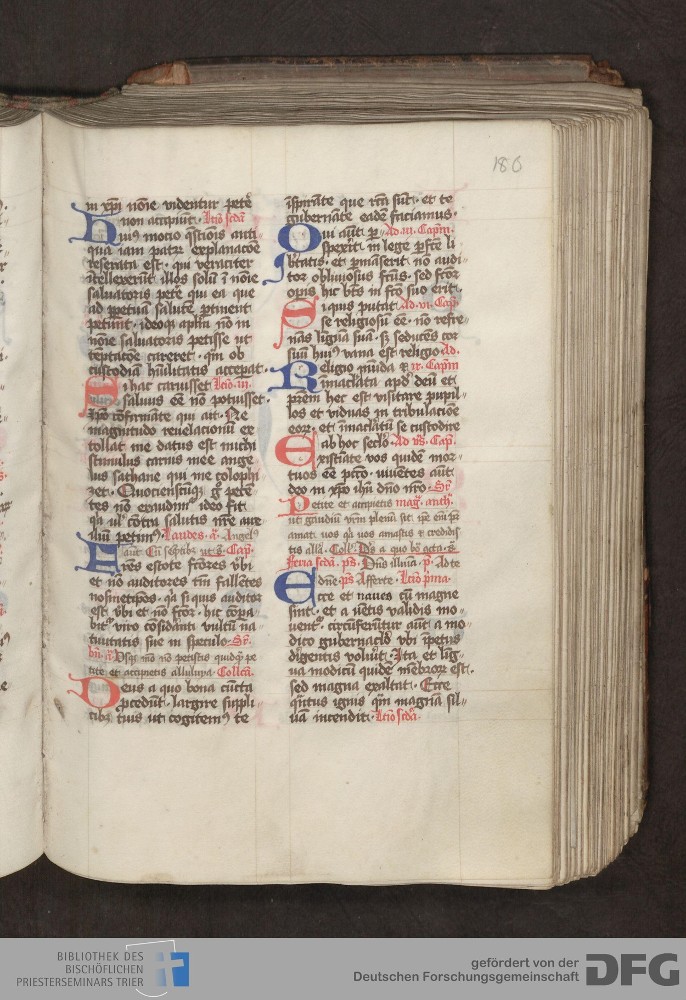 180
in xpi noīe videntur petere
non accipiūt. Lcio scda
Huius mocio q̄stionis anti
qua iam patrū explanacōe
reserata est. qui veraciter
ītellexerūt illos solū ī noīe
saluatoris petere qui ea que
ad ꝑpetuā salutē ꝑtinent
petunt. ideoqꝫ aplm̄ nō in
noīe saluatoris petisse ut
teptacōe careret. qm̄ ob
custodiā hūilitatis acceperat.
Si hac caruisset Lcio iii.
saluus eē nō potuisset.
ip̄o cōfirmāte qui ait. Ne
magnitudo reuelacionū ex
tollat me datus est michi
stimulus carnis mee ange
lus sathane qui me colophi
zet. Quocienscūqꝫ gͦ pete
tes nō exaudimur ideo fit
qͣ ul̓ cōtra salutis nr̄e aux
iliū petimꝰ Laudes. a. Angelꝰ
aut. Cū septibꝫ ut s. Cap.
Fr̄es estote fcōres v̓bi
et nō auditores tm̄ fallētes
nosmetip̄os. qͣ si quis auditor
est v̓bi et nō fcōr. hic cōpa
bit̓ viro cōsidānti vultū na
tiuitatis sue in speculo. Sr.
bn̄. a. Vsqꝫ mō nō petistis quidqͣ pe
tite et accipietis alleluya. Collcā.
Deus a quo bona cūcta
ꝓcedūt. largire suppli
cibꝫ tuis ut cogitemꝰ te
īspirāte que rc̄a sūt. et te
gubernāte eadē faciamus.
Qui aūt ꝑ Ad iii. Capm̄.
spexit in lege ꝑfc̄te li
b̓tatis. et ꝑmāserit nō audi
tor obliuiosus fc̄us. sed fc̄or
opis hic bt̄s in fc̄o suo erit.
Si quis putat Ad vi. Cap.
se religiosū eē. nō refre
nās lingūa suā. sꝫ seducēs cor
suū huiꝰ vana est religio. Ad
Religio mūda ⁊ ix. Capm̄
īmaclata apd̓ deū et
pr̄em hec est visitare pupil
los et viduas in tribulaciōe
eorꝫ. et īmaclatū se custodire
ab hoc sc̄lo. Ad vs̄. Cap.
Existīate vos quidē mor
tuos eē pcc̄o. viuētes aūt
deo in xpo ihu dn̄o nr̄o. Sr.
Petite et accipietis mag. anth.
ut gaudiū vr̄m plenū sit ip̄e em̄ pr̄
amat vos qͣ vos amastis ⁊ credidis
tis alla. Coll. Ds̄ a quo bō acta. s.
Feria scda. ps̄. Dn̄s illūia. p̄. Ad te
dn̄e. ps̄ Afferte. Lcio pma.
Ecce et naues cū magne
sint. et a uētis validis mo
uent̓. circūferūtur aūt a mo
dico gubernaclo vbi īpetus
dirigentis voluit. Ita et lig
ua modicū quidē mēbrorꝫ est.
sed magna exaltat. Ecce
qͣntus ignis qͣm magnā sil
uā incendit. Lcio scda.
BIBLIOTHEK DES
BISCHÖFLICHEN
PRIESTERSEMINARS TRIER
gefördert von der
Deutschen Forschungsgemeinschaft
DFG